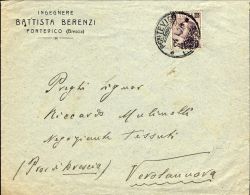 INGEGNERE
BATTISTA BERENZI
PONTEVICO (Brescia)
PONTEVICO
Preg. Signor
Riccardo Molinelli
Negoziante Tessuti
(Prov. di Brescia) Verolanuova